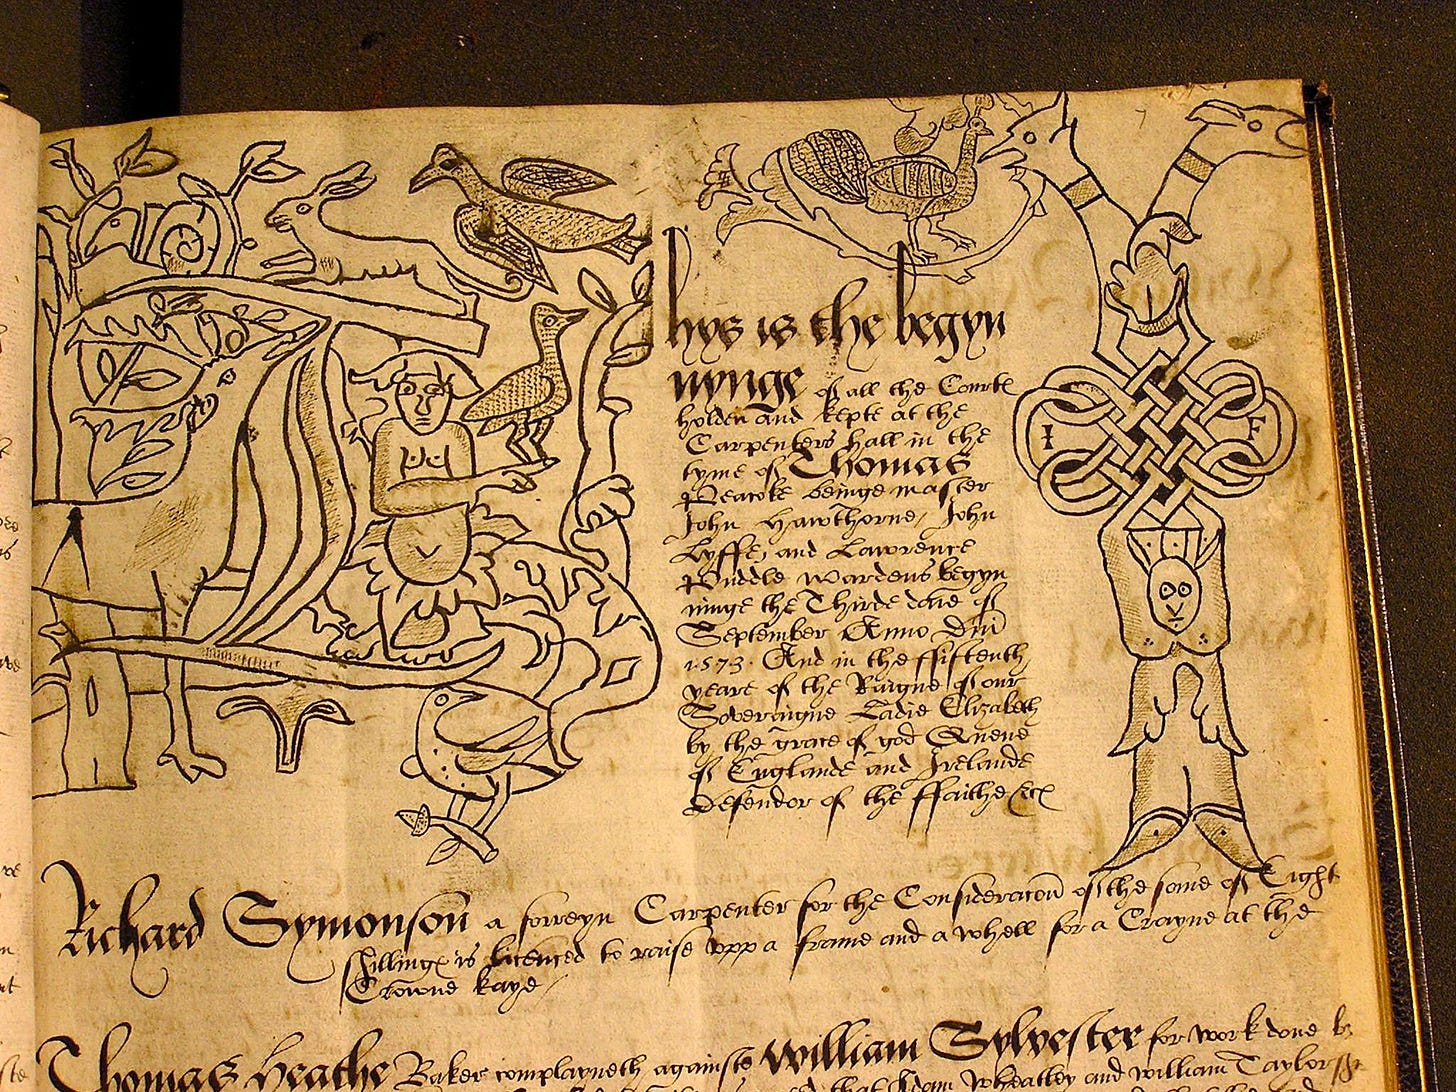 Thys is the begyn
nynge of all the Courtes
holden and kepte at the
Carpenters hall in the
tyme of Thomas
Peacoke beinge master
John Hawthorne, John
Lyffe, and Lawrence
Puddle wardens begyn
ninge the Thirde daie of
September Anno Dni
1573. And in the ffiftenth
yeare of the Raigne of our
Soveraigne Ladie Elizabeth
by the grace of god Quene
of Englande and Irelande
Defendor of the ffaithe &c
Richard Symonson a forreyn Carpenter for the Consideracon of the some of Eight
shillinges is licenced to raise vpp a frame and a whell for a Crayne at the
Crowne kaye
Thomas Heathe Baker complayneth againste William Sylvester for work done by
that Adam Wheatley and William Taylor